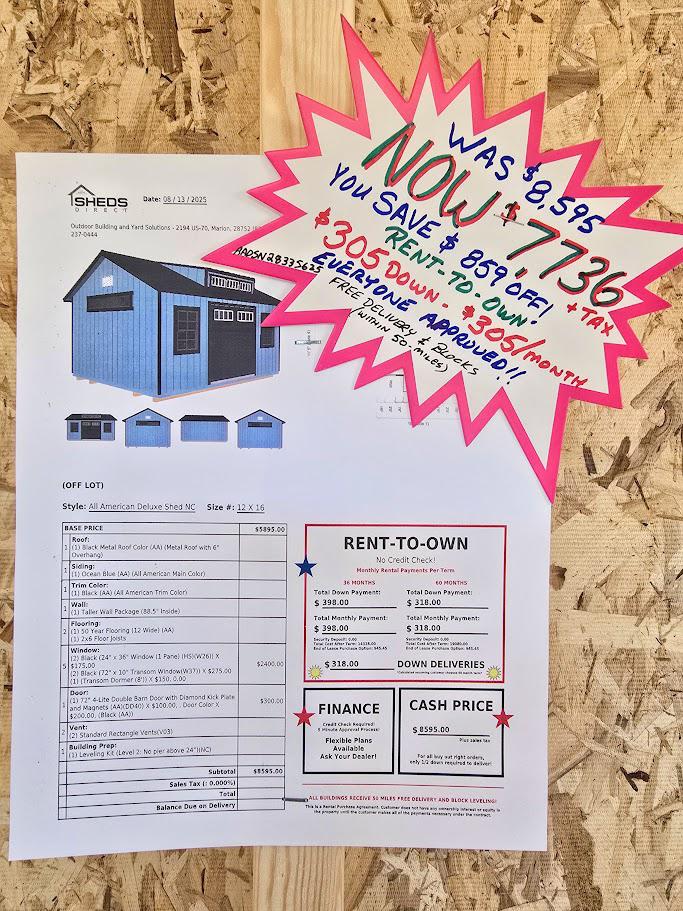 WAS $8,595
NOW $7736
+TAX
YOU SAVE $859 OFF!
RENT-TO-OWN!
$305 DOWN - $305/MONTH
EVERYONE APPROVED!!
FREE DELIVERY & BLOCKS
(WITHIN 50-MILES)
AADSN28335625
SHEDS
DIRECT
Date: 08 / 13 / 2025
Outdoor Building and Yard Solutions - 2194 US-70, Marion, 28752
237-0444
(OFF LOT)
Style: All American Deluxe Shed NC Size #: 12 X 16
BASE PRICE $5895.00
1 Roof:
(1) Black Metal Roof Color (AA) (Metal Roof with 6"
Overhang)
1 Siding:
(1) Ocean Blue (AA) (All American Main Color)
1 Trim Color:
(1) Black (AA) (All American Trim Color)
1 Wall:
(1) Taller Wall Package (88.5" Inside)
2 Flooring:
(1) 50 Year Flooring (12 Wide) (AA)
(1) 2x6 Floor Joists
5 Window:
(2) Black (24" x 36" Window (1 Pane) (HS)(W26)) X
$175.00
(2) Black (72" x 10" Transom Window(W37)) X $275.00
(1) (Transom Dormer (8')) X $150, 0.00
$2400.00
1 Door:
(1) 72" 4-Lite Double Barn Door with Diamond Kick Plate
and Magnets (AA)(DD40) X $100.00, . Door Color X
$200.00, (Black (AA))
$300.00
2 Vent:
(2) Standard Rectangle Vents(V03)
1 Building Prep:
(1) Leveling Kit (Level 2: No pier above 24")(NC)
Subtotal $8595.00
Sales Tax (: 0.000%)
Total
Balance Due on Delivery
RENT-TO-OWN
No Credit Check!
Monthly Rental Payments Per Term
36 MONTHS 60 MONTHS
Total Down Payment: Total Down Payment:
$ 398.00 $ 318.00
Total Monthly Payment: Total Monthly Payment:
$ 398.00 $ 318.00
Security Deposit: 0.00 Security Deposit: 0.00
Total Cost After Term: 14328.00 Total Cost After Term: 19080.00
End of Lease Purchase Option: $45.45 End of Lease Purchase Option: $45.45
$ 318.00 DOWN DELIVERIES
FINANCE
Credit Check Required!
5 Minute Approval Process!
Flexible Plans
Available
Ask Your Dealer!
CASH PRICE
$ 8595.00
Plus sales tax
For all buy out right orders,
only 1/2 down required to deliver!
ALL BUILDINGS RECEIVE 50 MILES FREE DELIVERY AND BLOCK LEVELING!
This is a Rental Purchase Agreement. Customer does not have any ownership interest or equity in
the property until the customer makes all of the payments necessary under the contract.